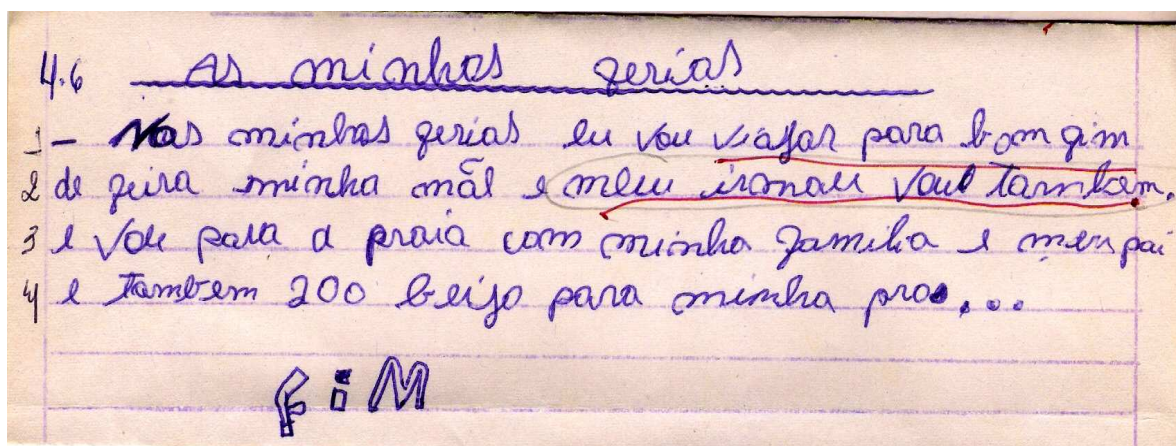 4.6 As minhas ferias
1 - Nas minhas ferias eu vou viajar para bom fim
2 de feira minha mãe e meu irmau vau tambem.
3 e vou para a praia com minha familia e meu pai
4 e tambem 200 beijo para minha pro....
FiM